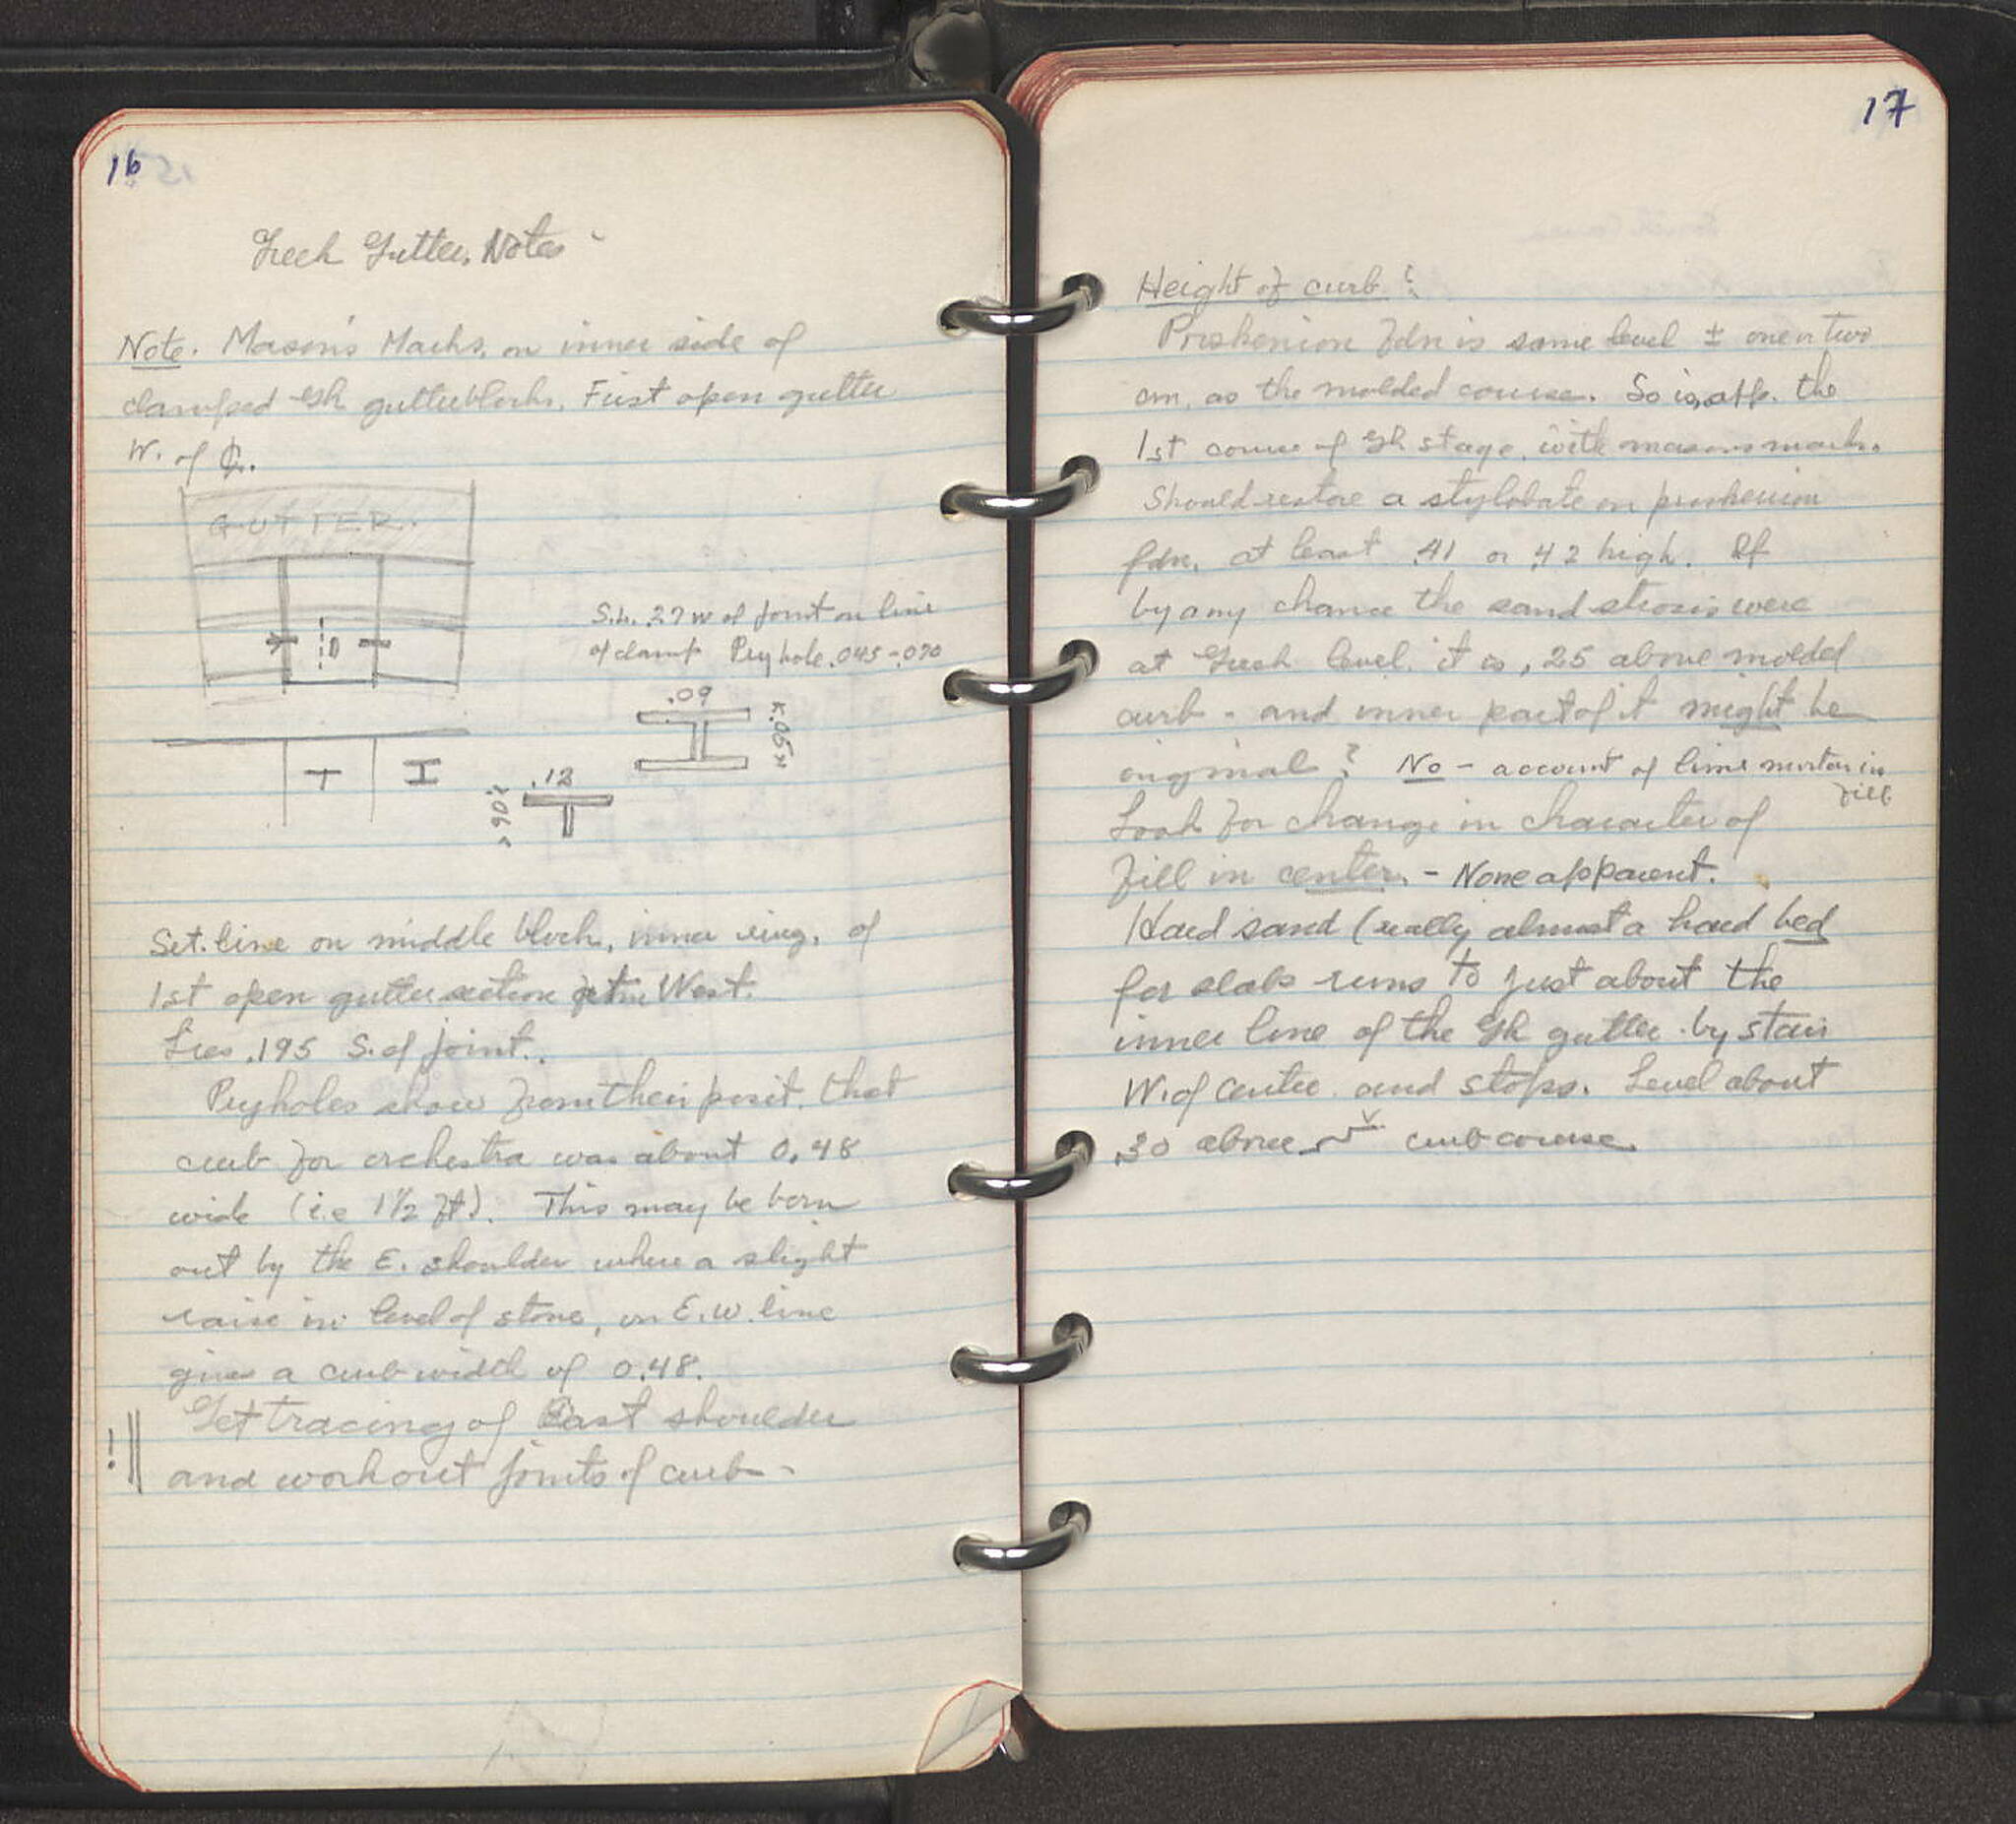 16
Greek Gutter Notes
Note. Mason's Marks, on inner side of
clamped Gk gutterblocks. First open gutter
W. of ℄.
GUTTER.
S.L. .27 W of joint on line
of clamp Pryhole .045 - .070
.09
.05
.12
.06
Set. line on middle block, inner ring, of
1st open gutter section West.
Lies .195 S. of joint.
Pryholes show from their posit. that
curb for orchestra was about 0.48
wide (i.e 1 1/2 ft). This may be born
out by the E. shoulder where a slight
raise in level of stone, on E.W. line
gives a curb width of 0.48.
Get tracing of East shoulder
and workout joints of curb -
17
Height of curb?
Proskenion fdn is same level ± one or two
cm. as the molded course. So is, app. the
1st course of Gk stage, with masons marks.
Should restore a stylobate on proskenion
fdn. at least .41 or .42 high. If
by any chance the sand strosis were
at Greek level, it is .25 above molded
curb - and inner part of it might be
original? No - account of lime mortar in
fill
Look for change in character of
fill in center. - None apparent.
Hard sand (really almost a hard bed
for slabs runs to just about the
inner line of the Gk gutter by stair
W. of center and stops. Level about
.30 above curb course.